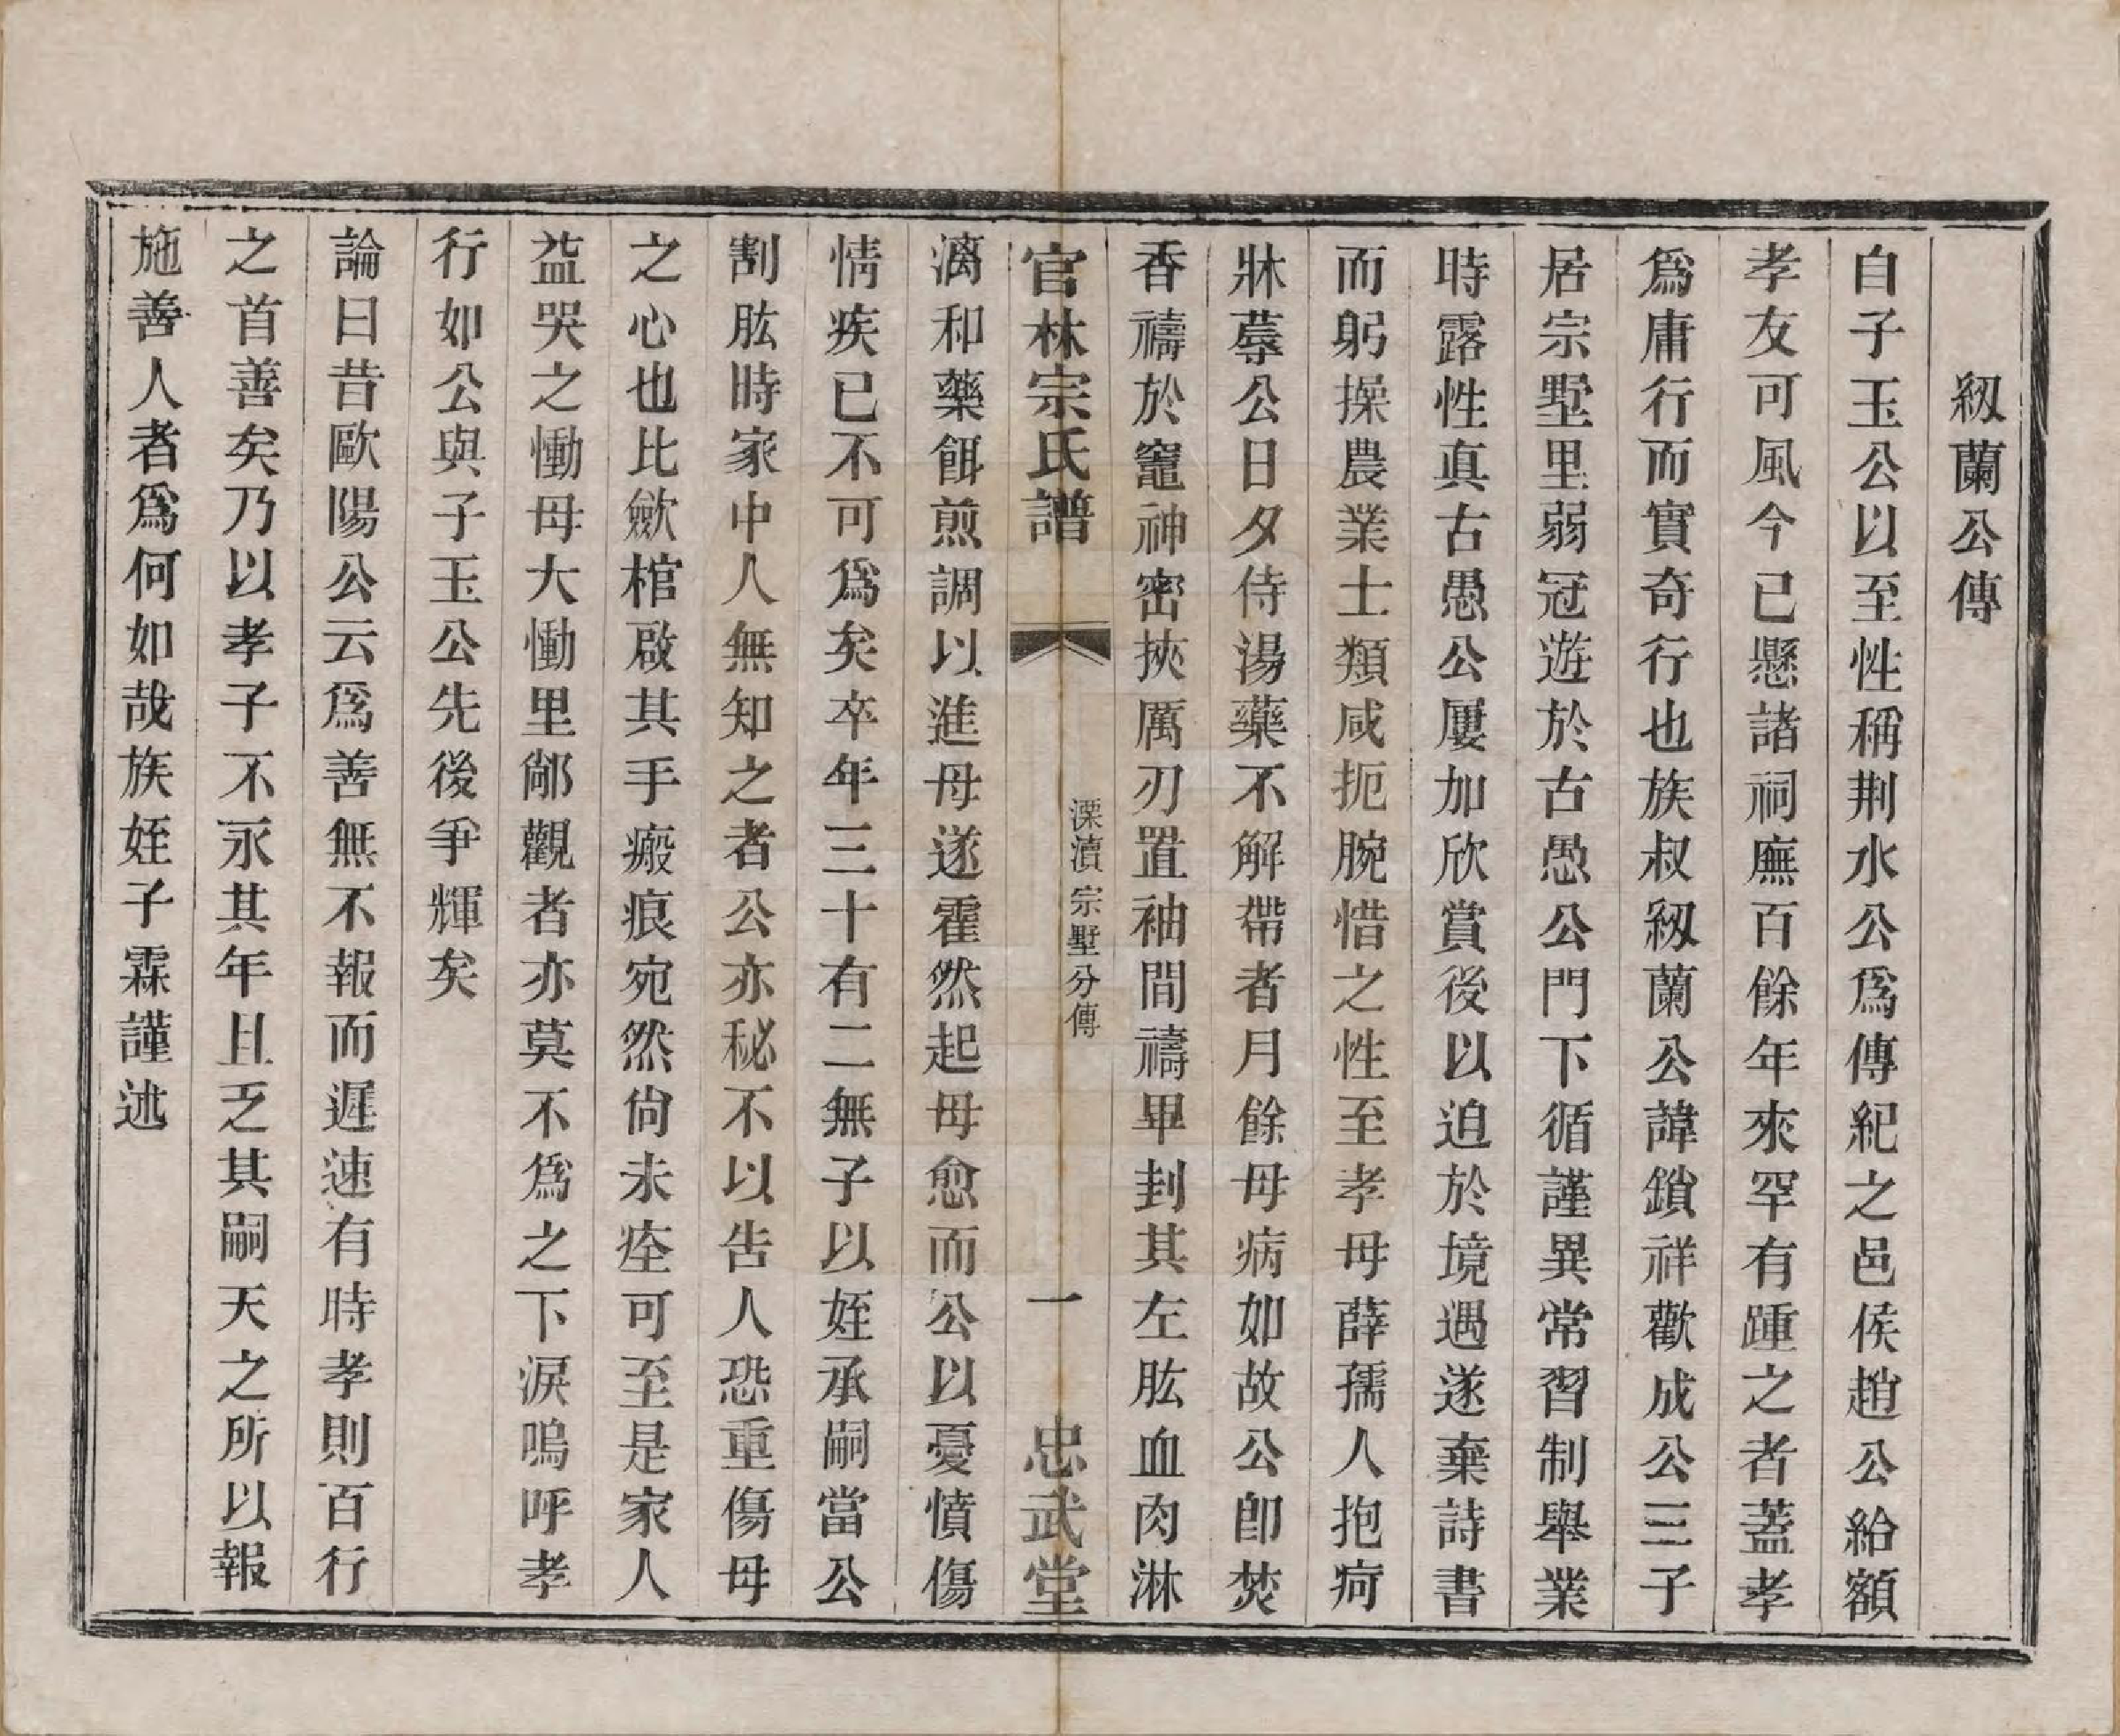 紉蘭公傳
自子玉公以至性稱荆水公爲傳紀之邑侯趙公給額
孝友可風今已懸諸祠廡百餘年來罕有踵之者蓋孝
爲庸行而實奇行也族叔紉蘭公諱鎖祥歡成公三子
居宗墅里弱冠遊於古愚公門下循謹異常習制舉業
時露性真古愚公屢加欣賞後以迫於境遇遂棄詩書
而躬操農業士類咸扼腕惜之性至孝母薛孺人抱疴
牀蓐公日夕侍湯藥不解帶者月餘母病如故公卽焚
香禱於竈神密挾厲刃置袖間禱畢刲其左肱血肉淋
官林宗氏譜
溧瀆宗墅分傳
一
忠武堂
漓和藥餌煎調以進母遂霍然起母愈而公以憂憤傷
情疾已不可爲矣卒年三十有二無子以姪承嗣當公
割肱時家中人無知之者公亦秘不以吿人恐重傷母
之心也比斂棺啟其手瘢痕宛然尙未痊可至是家人
益哭之慟母大慟里鄰觀者亦莫不爲之下淚嗚呼孝
行如公與子玉公先後爭輝矣
論曰昔歐陽公云爲善無不報而遲速有時孝則百行
之首善矣乃以孝子不永其年且乏其嗣天之所以報
施善人者爲何如哉族姪子霖謹述